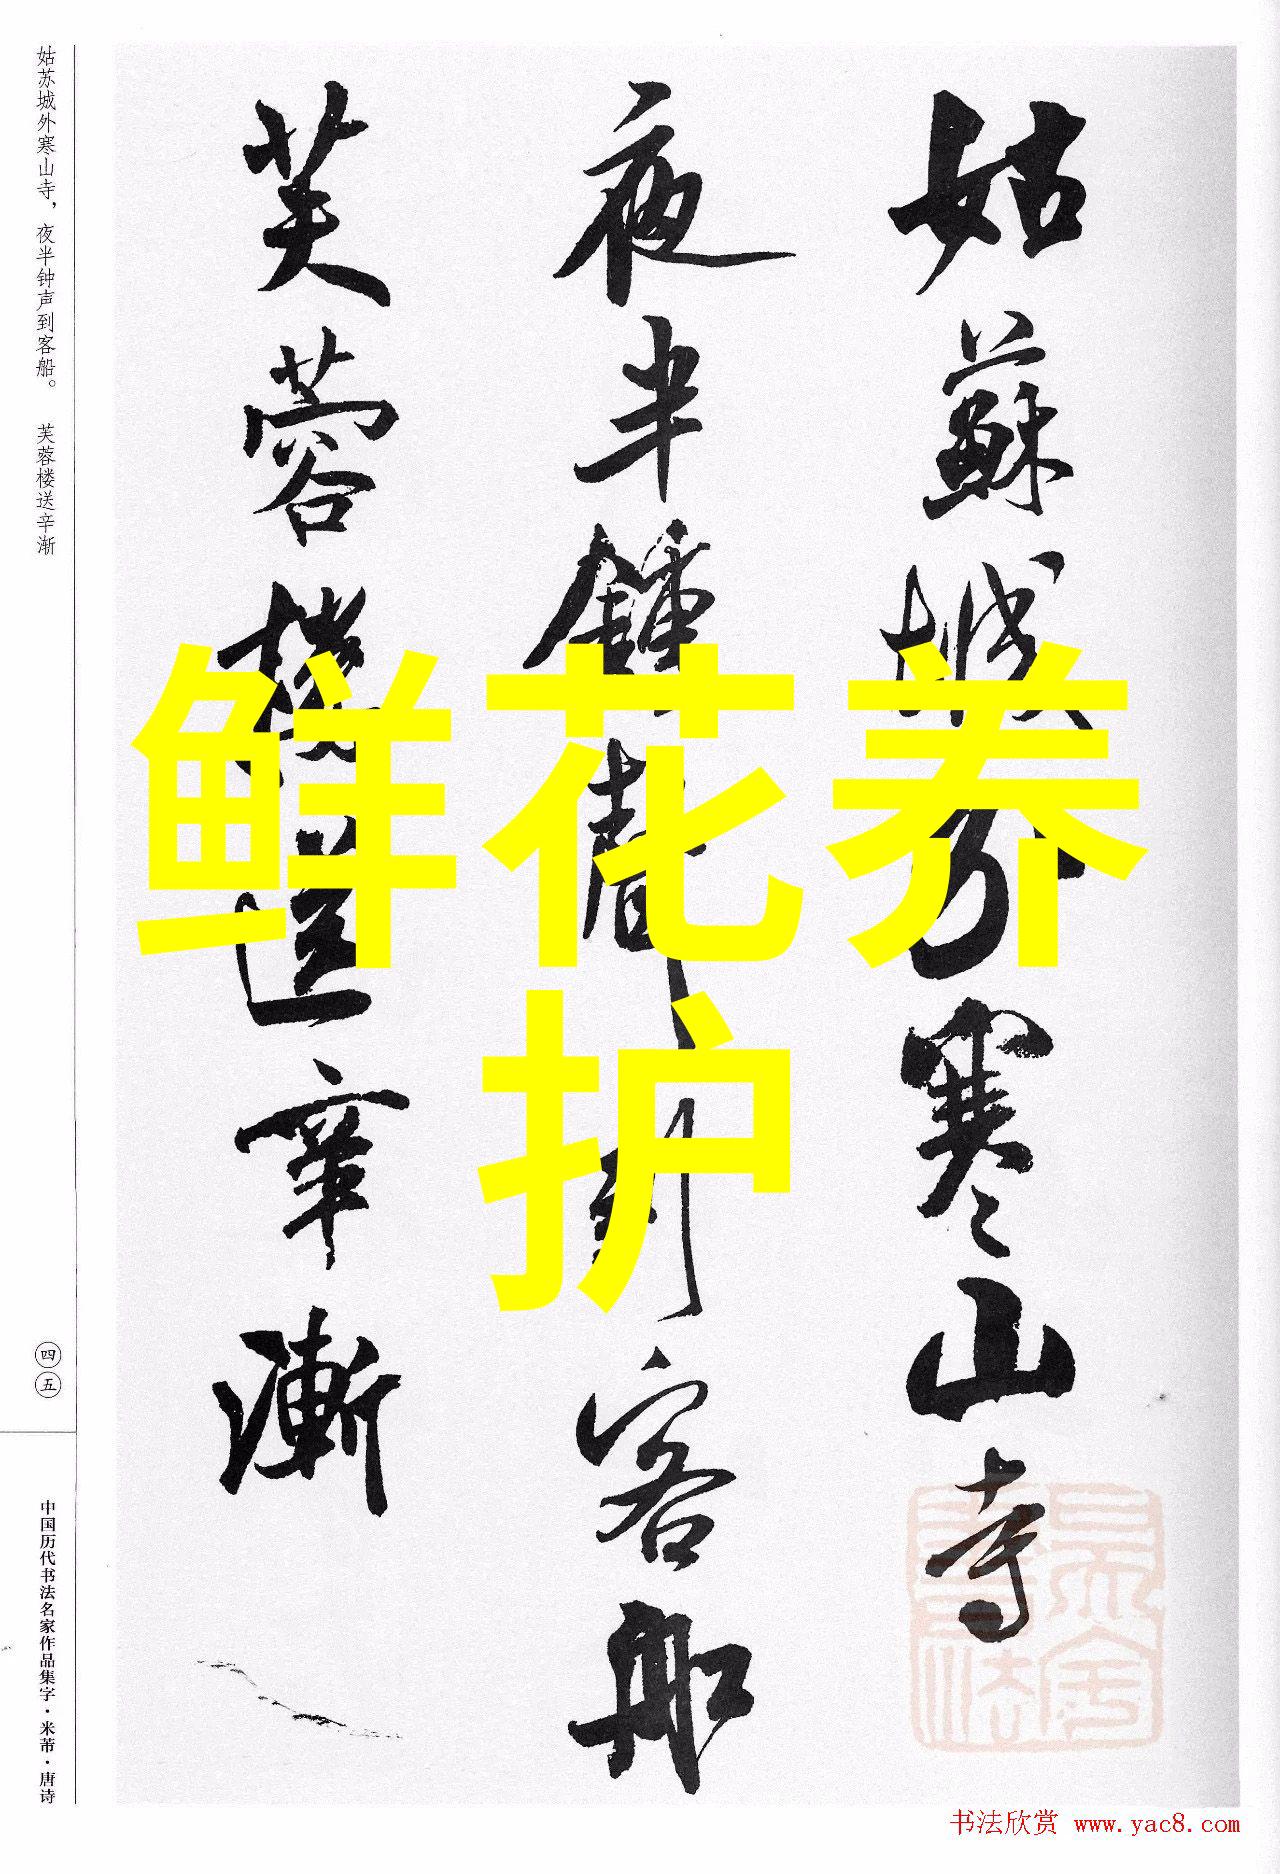 姑苏城外寒山寺，夜半钟声到客船。　芙蓉楼送辛渐
姑蘇城外寒山寺
夜半鐘聲到客船
芙蓉樓送辛漸
鲜花养
护
四五
中国历代书法名家作品集字·米芾·唐诗
书法欣赏 www.yac8.com